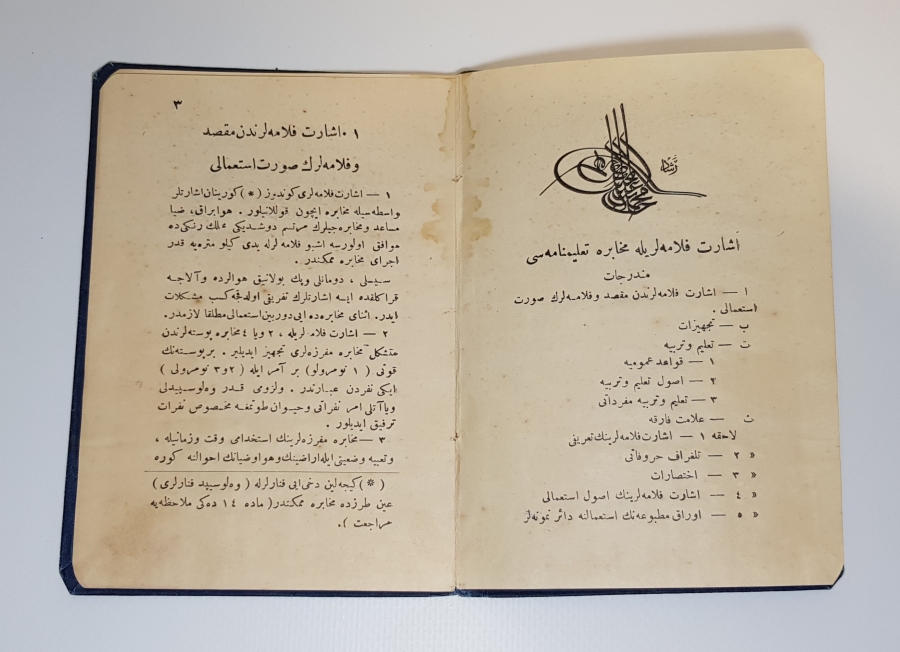 رشاد
اشارت فلامه لریله مخابره تعلیمنامه سی
مندرجات
ا — اشارت فلامه لرندن مقصد وفلامه لرك صورت
استعمالی .
ب — تجهیزات
ت — تعلیم وتربیه
١ — قواعد عمومیه
٢ — اصول تعلیم وتربیه
٣ — تعلیم وتربیه مفرداتی
ث — علامت فارقه
لاحقه ١ — اشارت فلامه لرینك تعریفی
» ٢ — تلغراف حروفاتی
» ٣ — اختصارات
» ٤ — اشارت فلامه لرینك اصول استعمالی
» ٥ — اوراق مطبوعه نك استعمالنه دائر نمونه لر
٣
١ . اشارت فلامه لرندن مقصد
وفلامه لرك صورت استعمالی
١ — اشارت فلامه لری كوندوز (*) كورینان اشارتلر
واسطه سیله مخابره ایچون قوللانیلور . هوا براق ، ضیا
مساعد ومخابره جیلرك مرتسم دوشدیكی محلك رنكی ده
موافق اولورسه اشبو فلامه لرله یدی كیلو متره یه قدر
اجرای مخابره ممكندر .
سیسلی ، دومانلی وپك بولانیق هوالرده وآلاجه
قراكلقده ایسه اشارتلرك تفریقی اولدقجه كسب مشكلات
ایدر. اثنای مخابره ده ایی دوربین استعمالی مطلقا لازمدر.
٢ — اشارت فلامه لریله ، ٢ ویا ٤ مخابره پوسته لرندن
متشكل مخابره مفرزه لری تجهیز ایدیلیر . بر پوسته نك
قوتی ( ١ نومرولو ) بر آمر ایله ( ٢ و ٣ نومرولی )
ایكی نفردن عبارتدر . ولزومی قدر وه لوسیپدلی
ویا آتلی امر نفراتی وحیوان طوتمغه مخصوص نفرات
ترفیق ایدیلور .
٣ — مخابره مفرزه لرینك استخدامی وقت وزمانیله ،
وتعبیه وضعیتی ایله اراضینك وهوا وضیانك احوالنه كوره
(*) كیجه لین دخی ایی فنارلرله ( وه لوسیپد فنارلری )
عین طرزده مخابره ممكندر ( ماده ١٤ ده كی ملاحظه یه
مراجعت ).